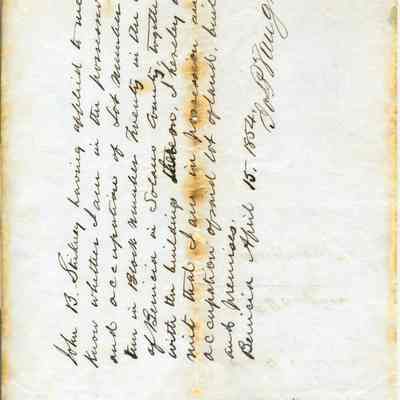 John B. Stilwey having applied to me
know whether I am in the possess
and occupation of Lot Number
ten in Block Number Twenty in the
of Benicia in Solano County togeth
with the buildings thereon, I hereby
mit that I am in possession an
occupation of said lot of land, buil
and premises.
Benicia April 15. 1854.